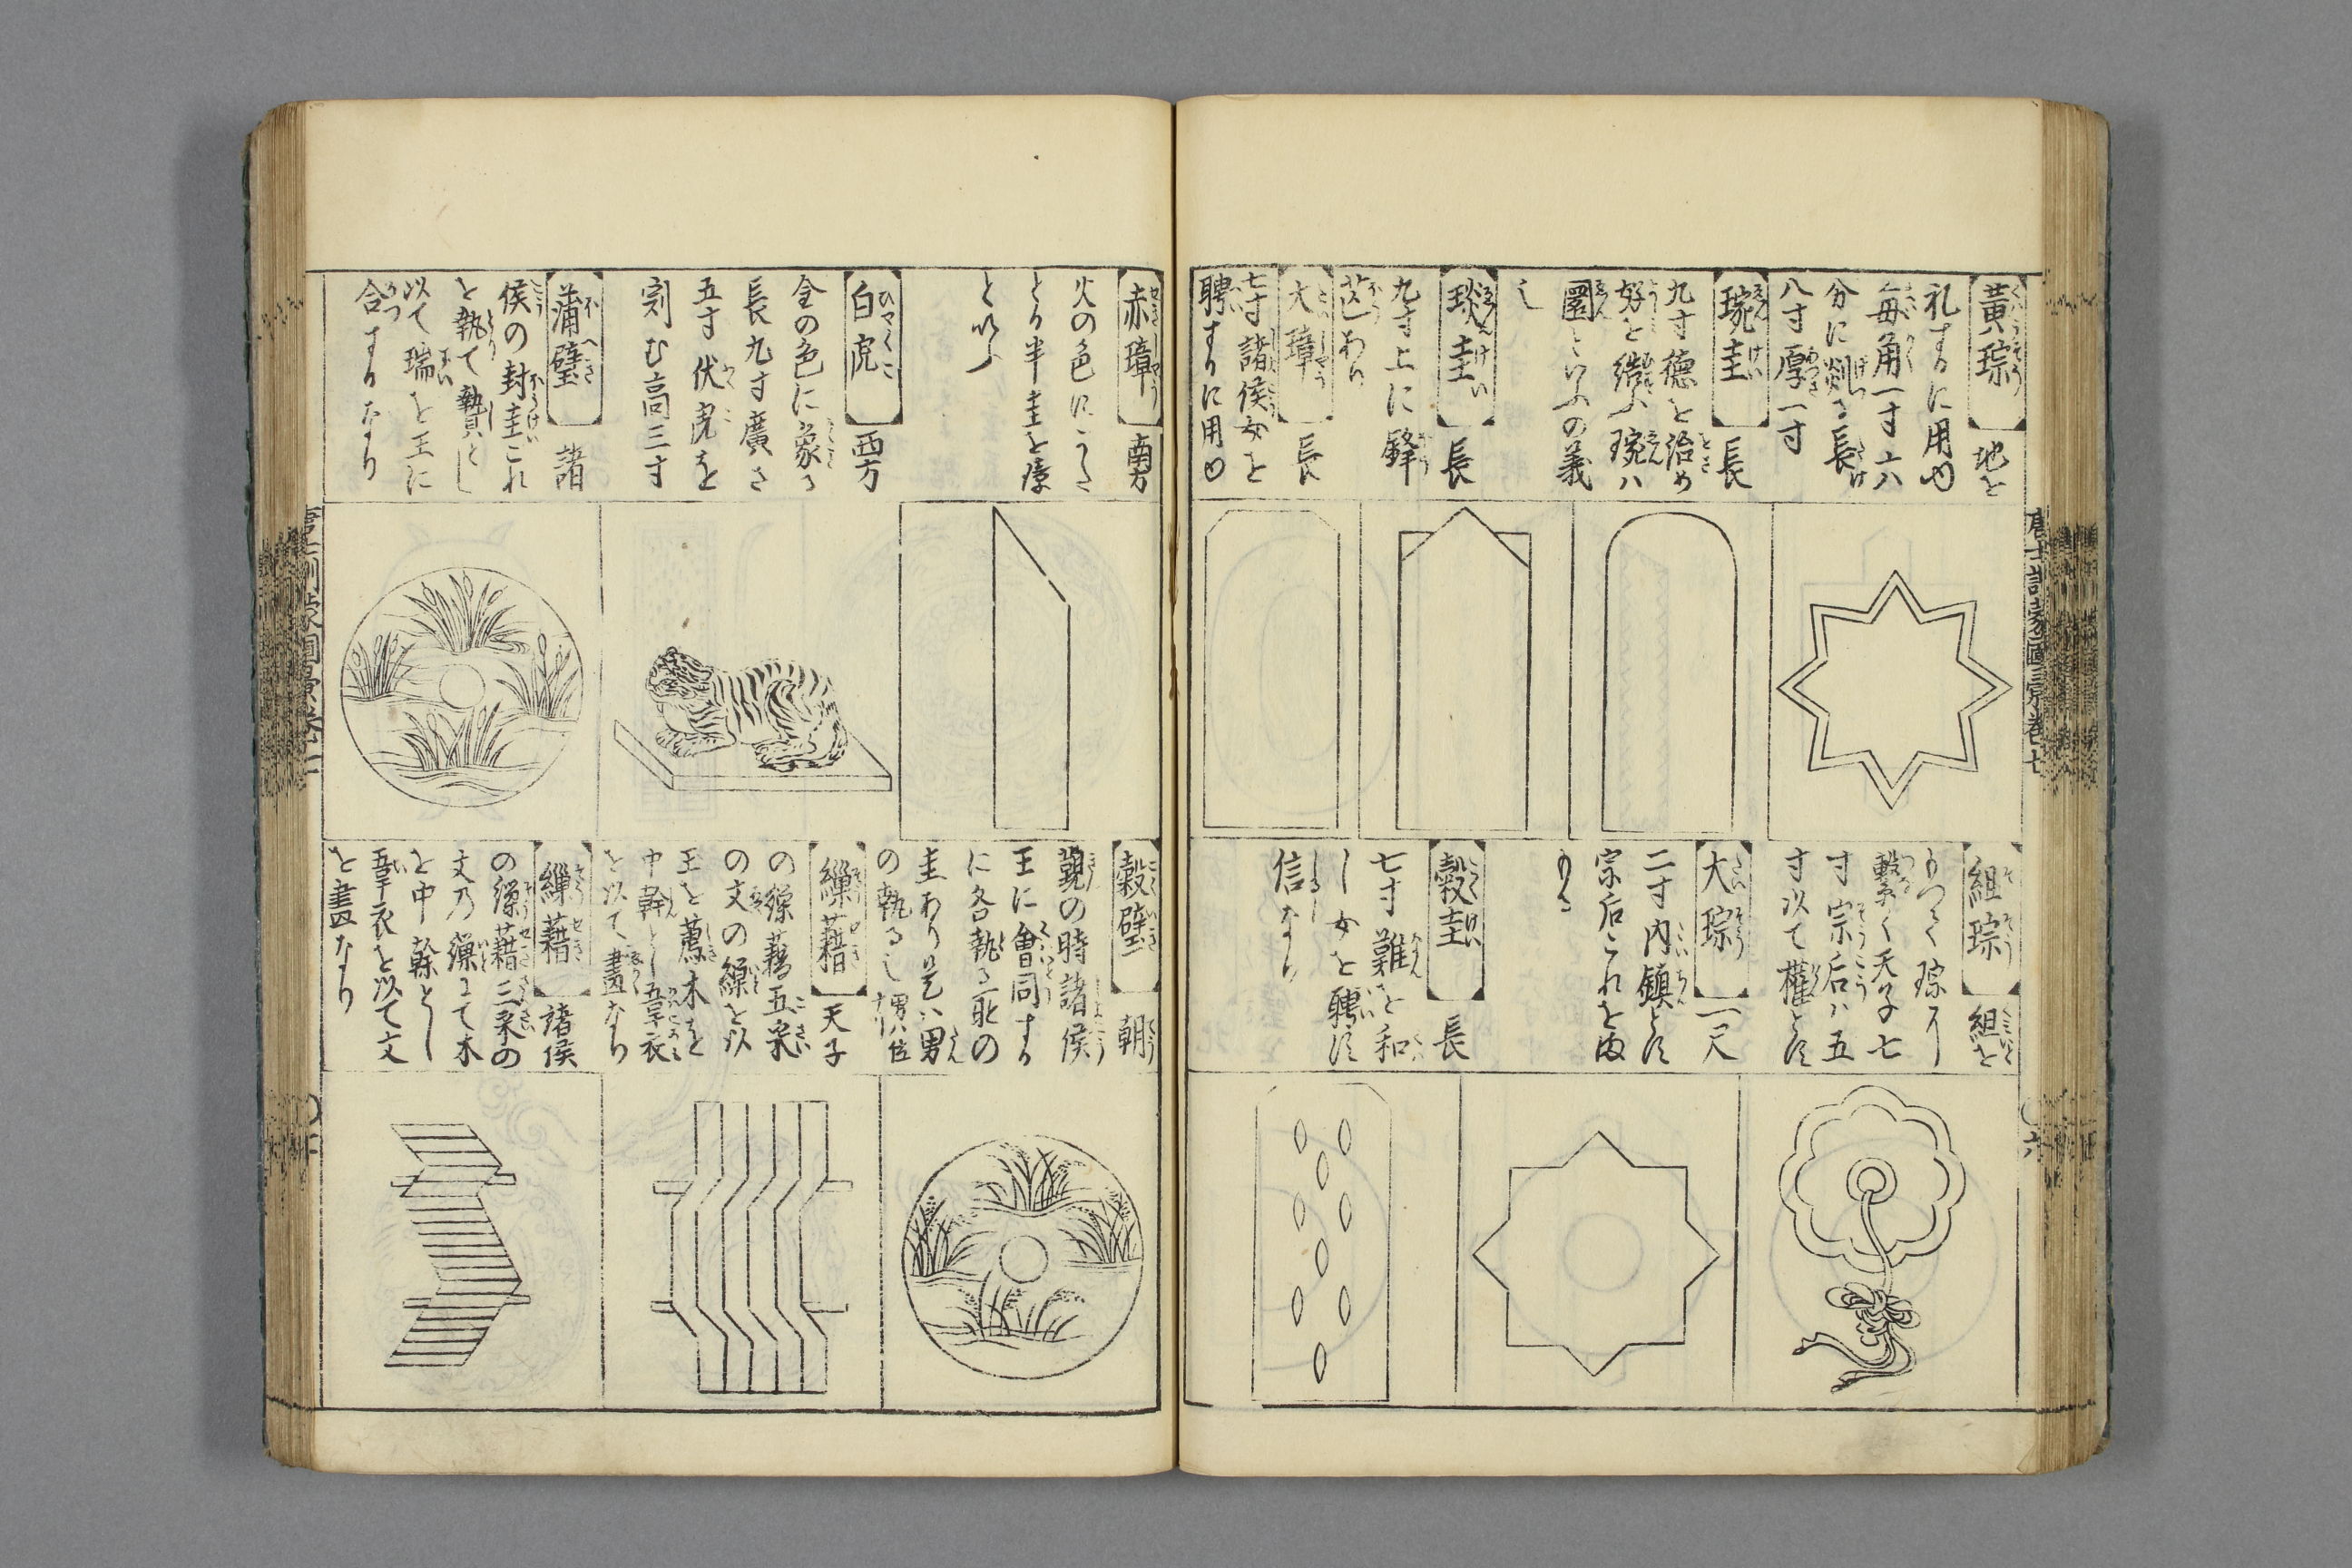 黄琮 地を
礼するに用ゆ
毎角一寸六
分に剡る長
八寸厚一寸
琬圭 長
九寸徳を治め
好を結ふ琬ハ
圜といふの義
也
琰圭 長
九寸上に鋒
芒あり
大璋 長
七寸諸侯女を
聘するに用ゆ
組琮 組を
もつて琮の
繋く天子七
寸宗后ハ五
寸以て権とす
大琮 一尺
二寸内鎮とす
宗后これを守
もる
穀圭 長
七寸難を和
し女を聘す
信なり
唐土訓蒙圖彙巻七
〇六
赤璋 南方
火の色にかたとり
とり半圭を璋
と以ふ
白虎 西方
金の色に象る
長九寸廣さ
五寸伏虎を
刻む高三寸
蒲璧 諸
侯の封圭これ
を執て贄とし
以て瑞を王に
合するなり
穀璧 朝
覲の時諸侯
王に會同する
に各執る所の
圭あり是ハ男
の執る也 男ハ位なり
繅藉 天子
の繅藉五采
の文の繅を以
王を薦木を
中幹とし韋衣
を以て畫なり
繅藉 諸侯
の繅藉三采の
文乃繅にて木
を中幹とし
韋衣を以て文
を畫なり